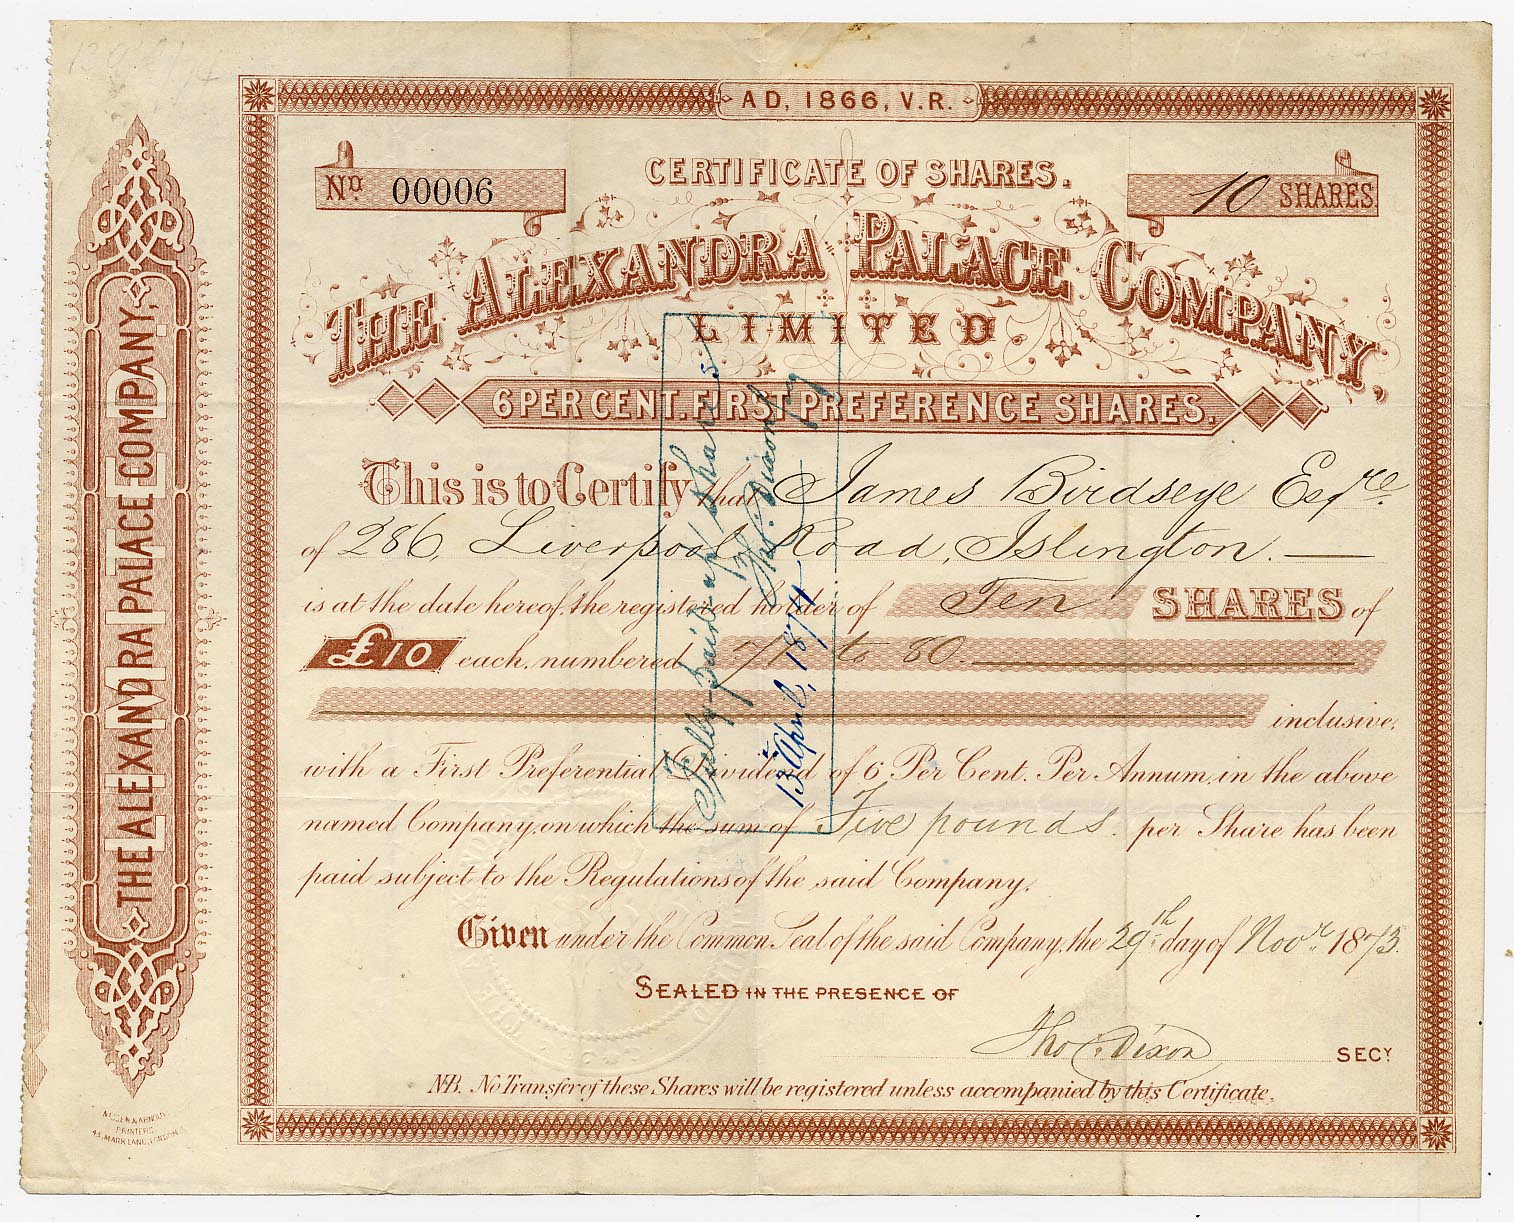 AD, 1866, V.R.
No. 00006
CERTIFICATE OF SHARES.
10 SHARES.
THE ALEXANDRA PALACE COMPANY,
LIMITED
6 PER CENT. FIRST PREFERENCE SHARES.
This is to Certify that James Birdseye Esqre
of 286, Liverpool Road, Islington.
is at the date hereof, the registered holder of Ten SHARES of
£10 each, numbered 71 to 80.
inclusive,
with a First Preferential Dividend of 6 Per Cent. Per Annum, in the above
named Company, on which the sum of Five pounds. per Share has been
paid subject to the Regulations of the said Company.
Given under the Common Seal of the said Company, the 29th day of Novr 1873.
SEALED IN THE PRESENCE OF
Tho C. Dixon SECY
N.B. No Transfer of these Shares will be registered unless accompanied by this Certificate.
Fully-paid-up shares
Tho. Dixon
13 April, 1874
THE ALEXANDRA PALACE COMPANY,
LIMITED
PRINTERS
43, MARK LANE, LONDON